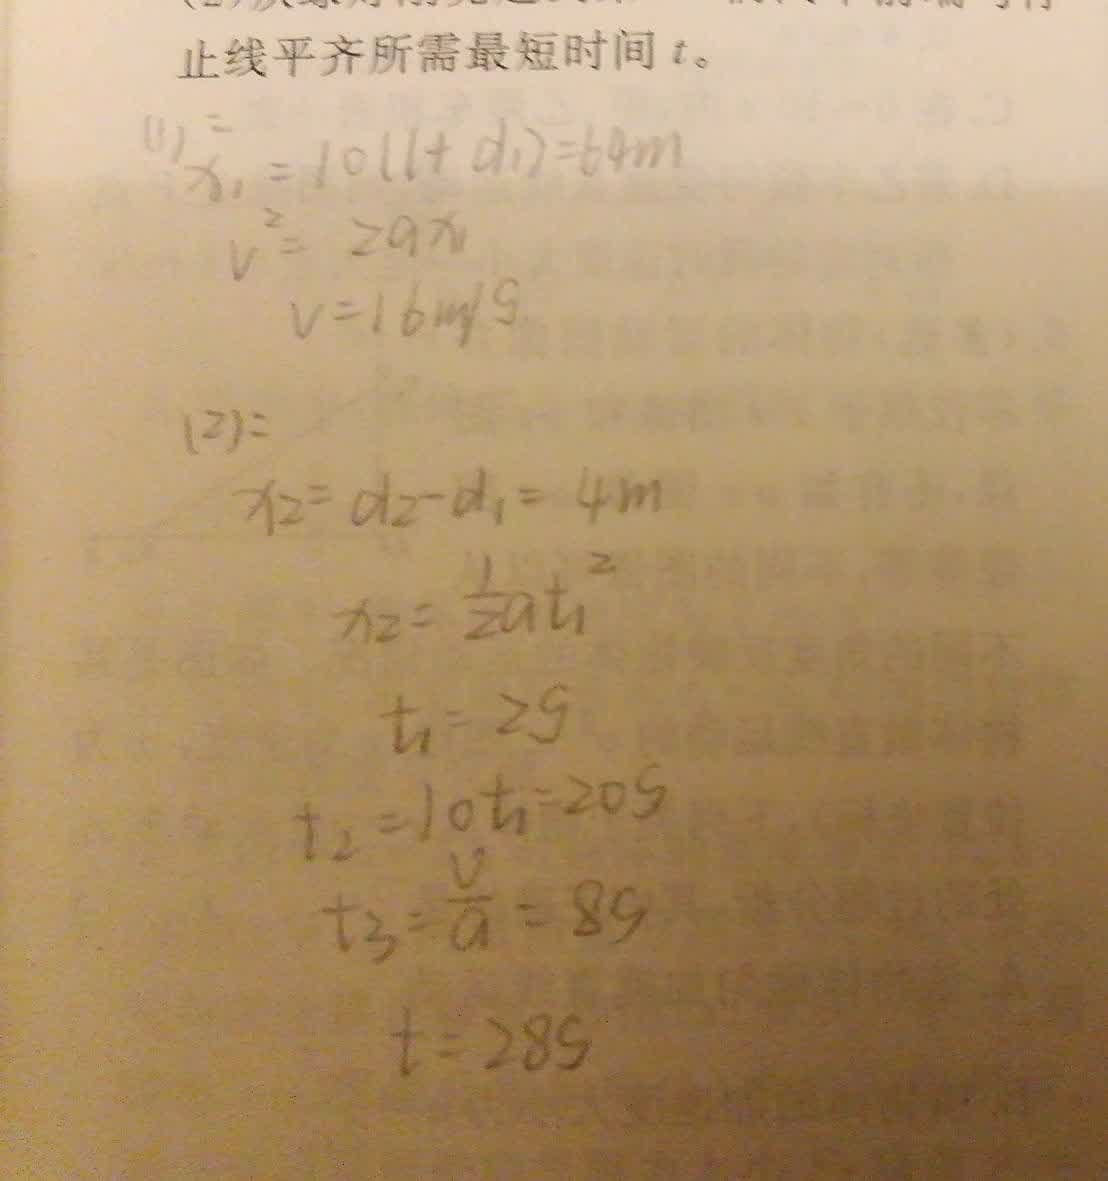 止线平齐所需最短时间 t。
(1)=
x₁ = 10(l+d₁)=64m
v² = 2ax₁
v=16m/s
(2)=
x₂=d₂-d₁=4m
x₂=½at₁²
t₁=2s
t₂=10t₁=20s
t₃=v/a=8s
t=28s